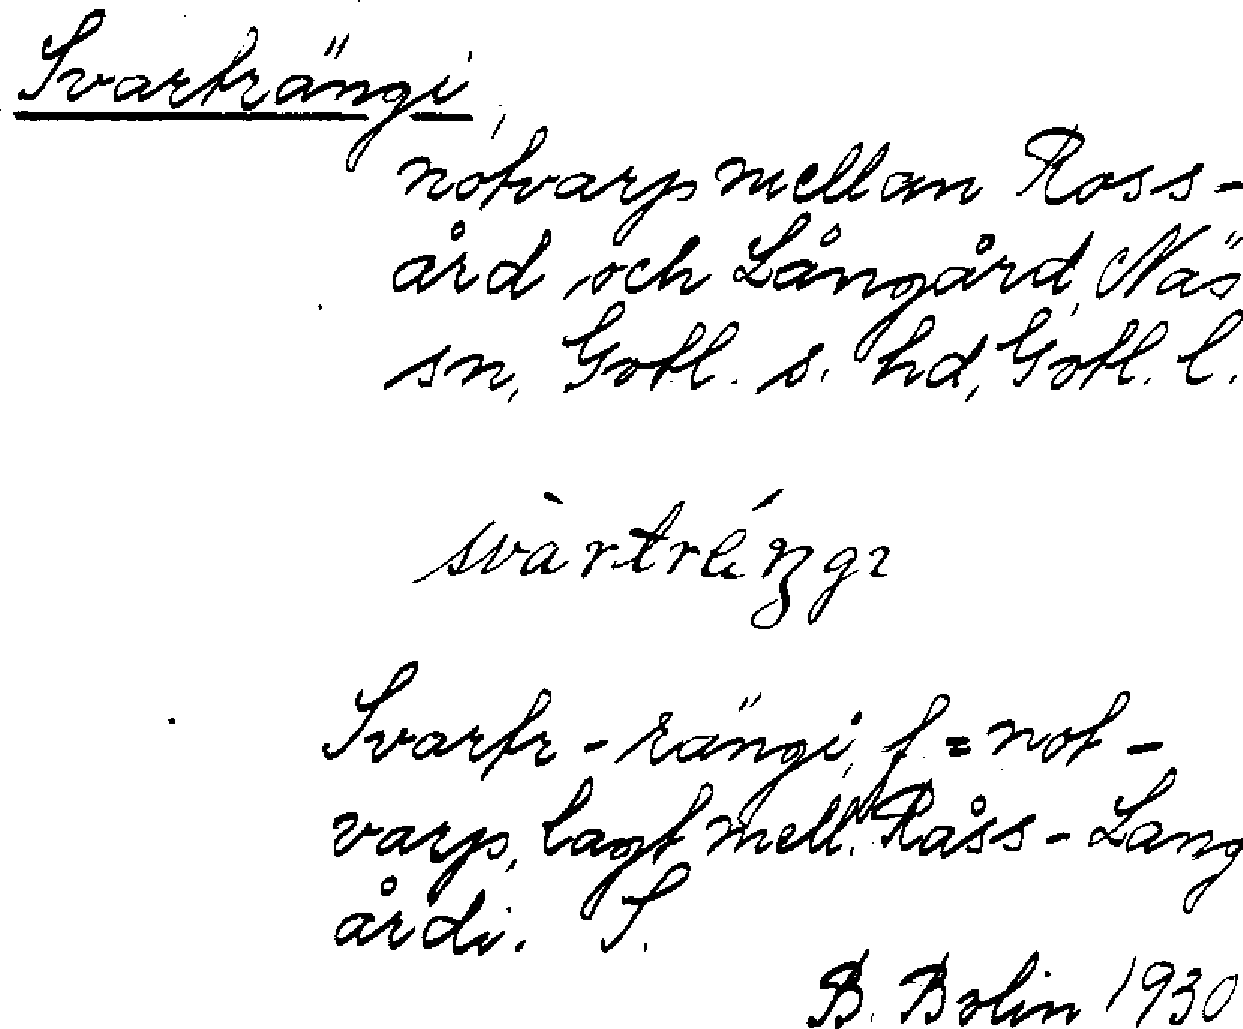 Svarträngi,
notvarp mellan Ross-
ård och Långård, Näs
sn, Gotl. s. hd, Gotl. l.
svàrtrέ́ŋgı
Svartr-rängi, f = not-
varp, lagt mell. Råss-Lang
årdi. S.
B. Bolin 1930